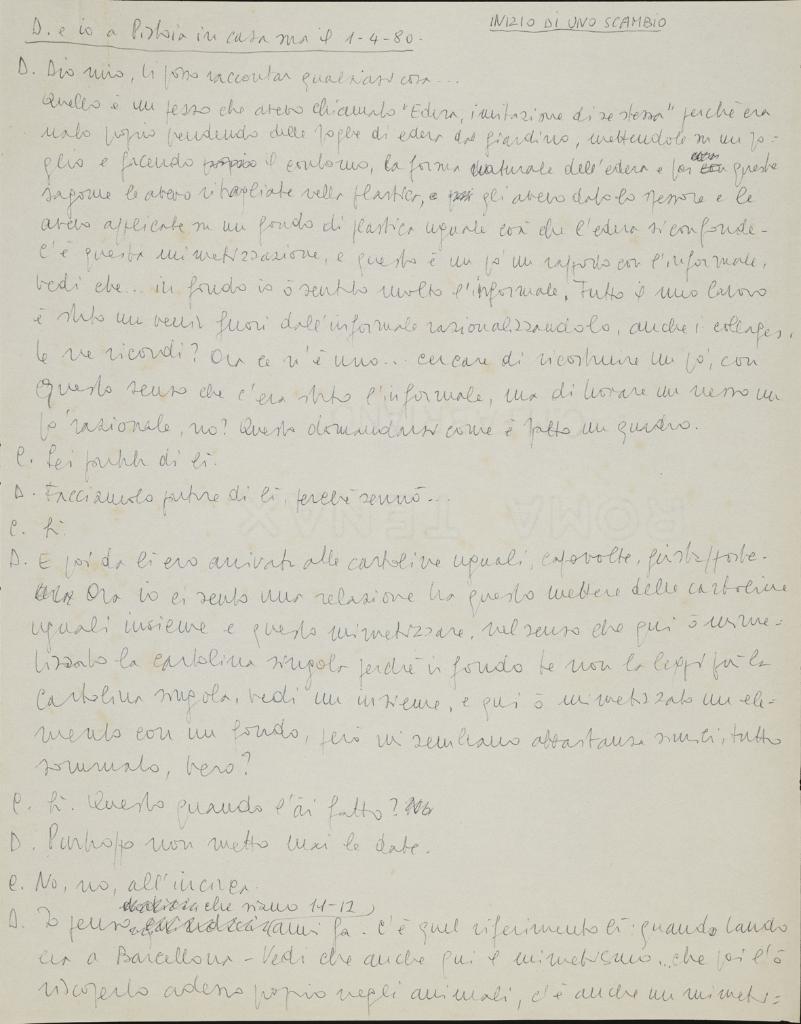 INIZIO DI UNO SCAMBIO
D. e io a Pistoia in casa sua il 1-4-80.
D. Dio mio, ti posso raccontar qualsiasi cosa...
Quello è un pezzo che avevo chiamato "Edera, imitazione di se stessa" perché era
nato proprio prendendo delle foglie di edera dal giardino, mettendole su un fo=
glio e facendo il contorno, la forma naturale dell'edera e poi queste
sagome le avevo ritagliate nella plastica, e poi gli avevo dato lo spessore e le
avevo applicate su un fondo di plastica uguale così che l'edera si confonde-
C'è questa mimetizzazione, e questo è un po' un rapporto con l'informale,
vedi che... in fondo io ò sentito molto l'informale. Tutto il mio lavoro
è stato un venir fuori dall'informale razionalizzandolo, anche i collages,
te ne ricordi? Ora ce n'è uno... cercare di ricostruire un po', con
questo senso che c'era stato l'informale, ma di trovare un nesso un
po' razionale, no? Questo domandarsi come è fatto un quadro.
C. Sei partita di lì.
D. Facciamola partire di lì, perché sennò...
C. Sì.
D. E poi da lì ero arrivata alle cartoline uguali, capovolte, giustapposte.
Ora io ci sento una relazione tra questo mettere delle cartoline
uguali insieme e questo mimetizzare, nel senso che qui ò mime=
tizzato la cartolina singola perché in fondo te non la leggi più la
cartolina singola, vedi un insieme, e qui ò mimetizzato un ele=
mento con un fondo, però mi sembrano abbastanza simili, tutto
sommato, vero?
C. Sì. Questo quando l'ài fatto?
D. Purtroppo non metto mai le date.
C. No, no, all'incirca.
D. Io penso che siano 11-12 anni fa. C'è quel riferimento lì: quando Lando
era a Barcellona - Vedi che anche qui il mimetismo.. che poi l'ò
riscoperto adesso proprio negli animali, c'è anche un mimeti=
ROMA TENAX